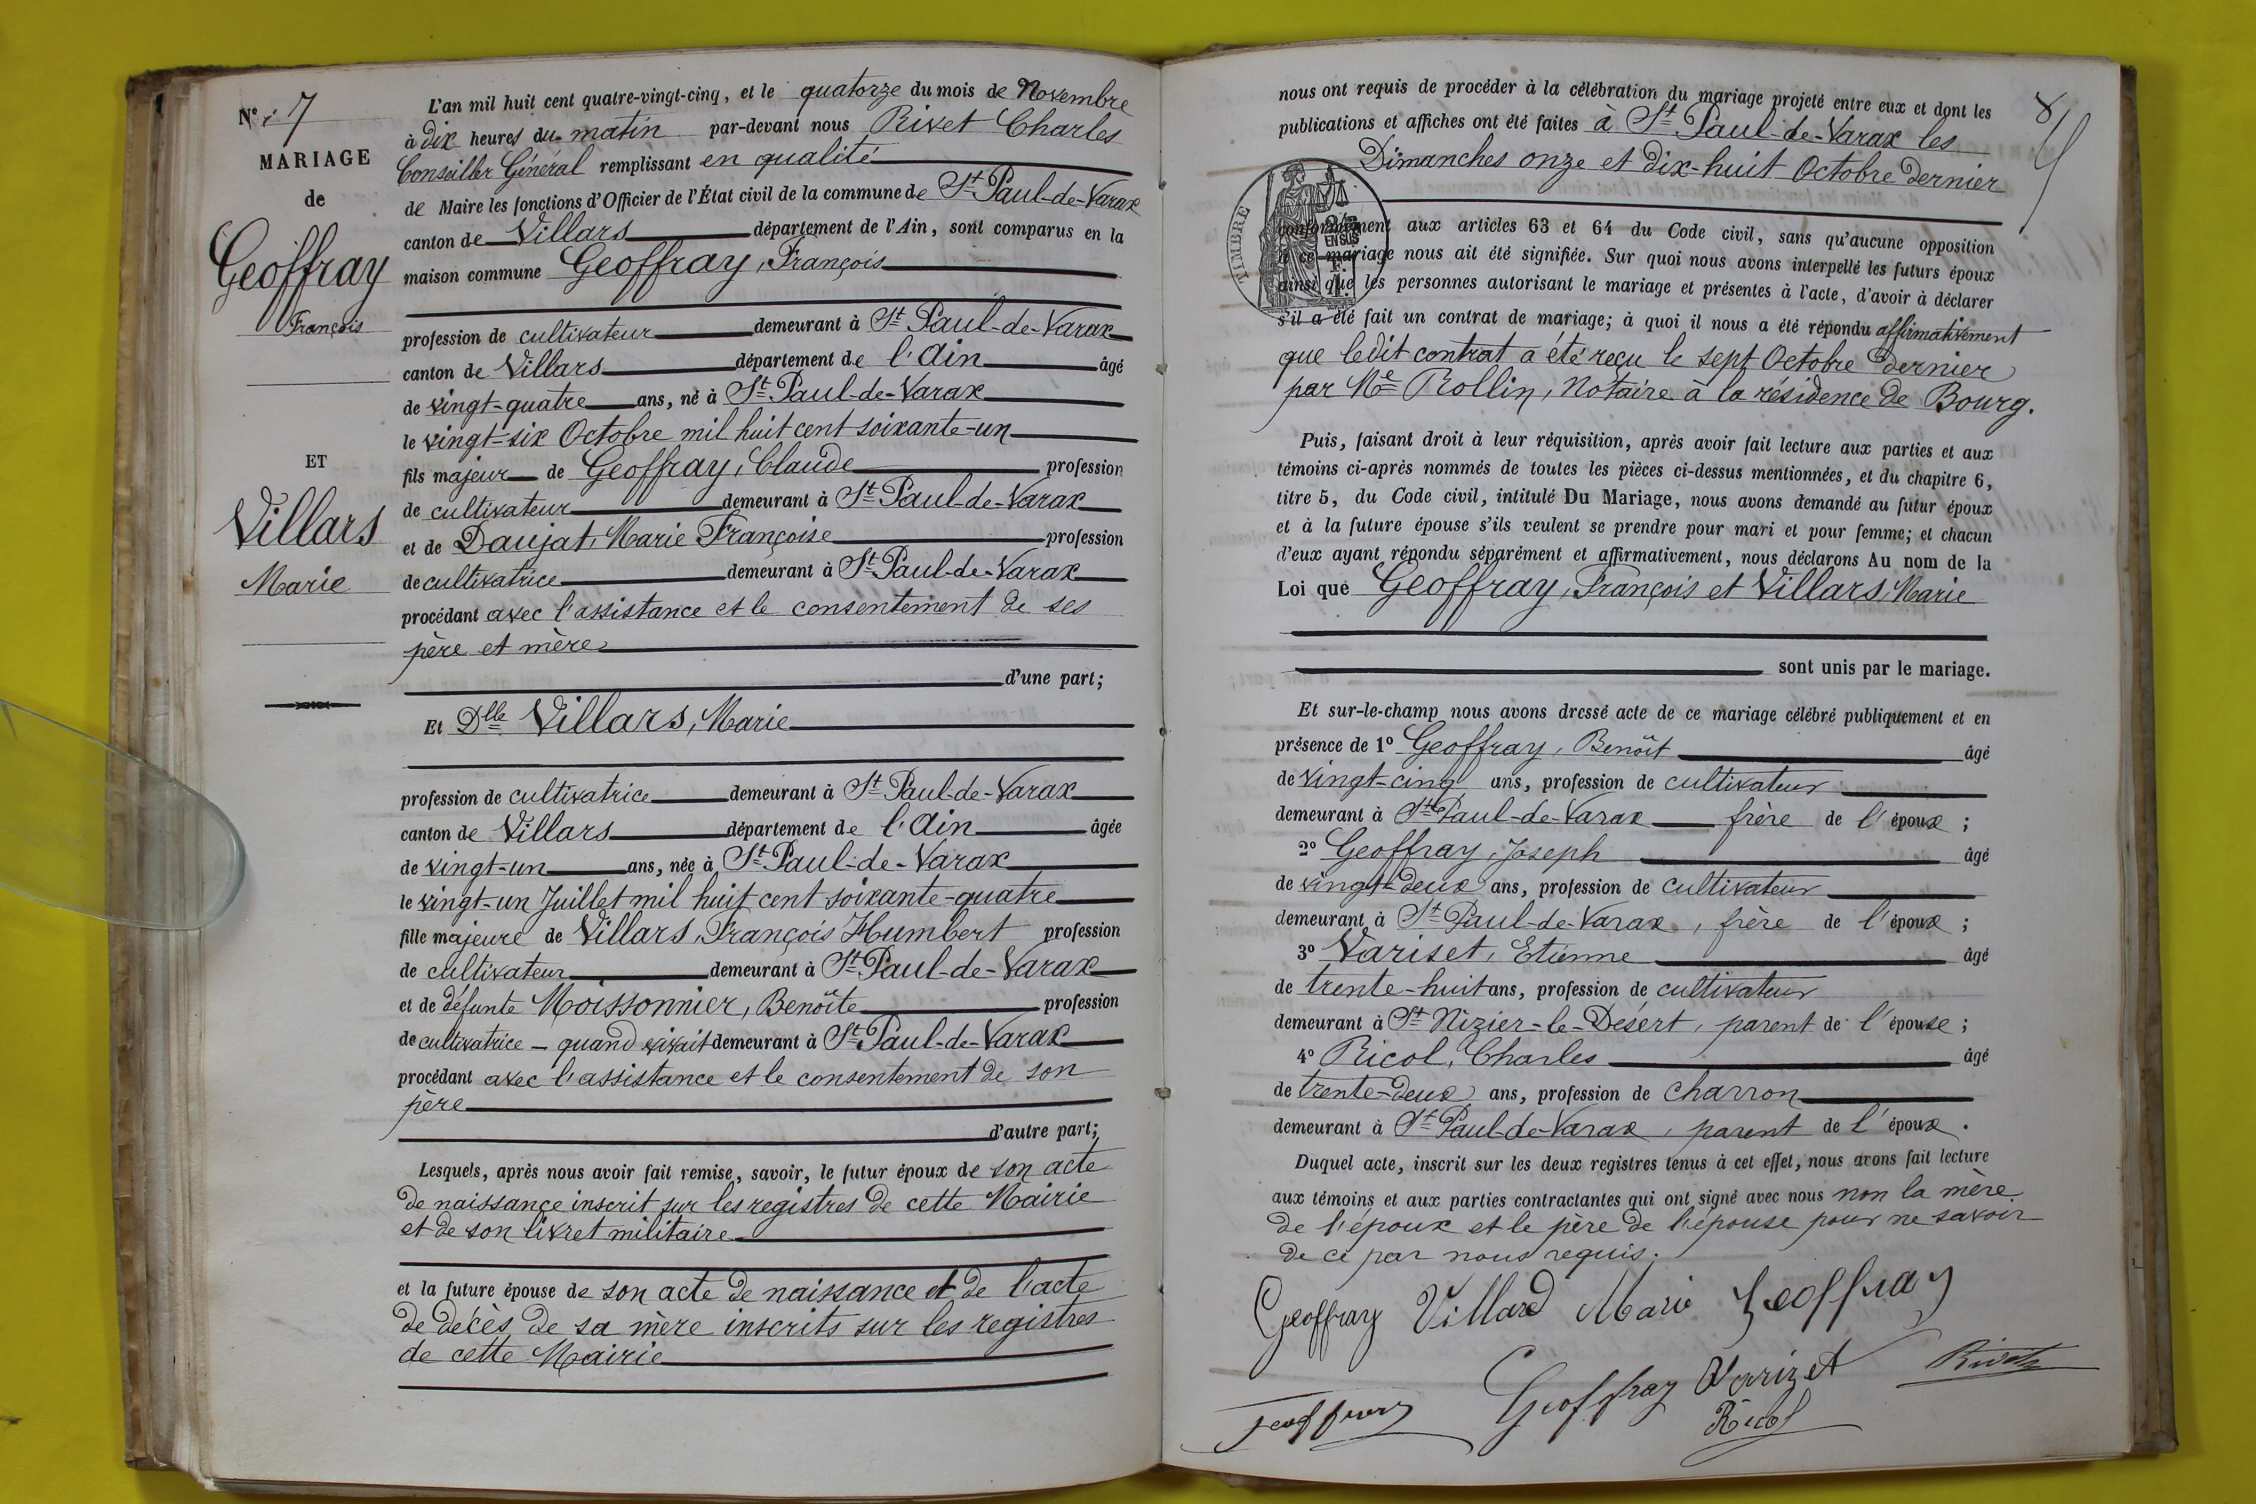 N° 7
MARIAGE
de
Geoffray
François
ET
Villars
Marie
L'an mil huit cent quatre-vingt-cinq, et le quatorze du mois de Novembre
à dix heures du matin par-devant nous Rivet Charles
Conseiller Général remplissant en qualité
de Maire les fonctions d'Officier de l'État civil de la commune de St Paul-de-Varax
canton de Villars département de l'Ain, sont comparus en la
maison commune Geoffray, François
profession de cultivateur demeurant à St Paul-de-Varax
canton de Villars département de l'Ain âgé
de vingt-quatre ans, né à St Paul-de-Varax
le vingt-six Octobre mil huit cent soixante-un
fils majeur de Geoffray, Claude profession
de cultivateur demeurant à St Paul-de-Varax
et de Daujat, Marie Françoise profession
de cultivatrice demeurant à St Paul-de-Varax
procédant avec l'assistance et le consentement de ses
père et mère
d'une part;
Et Dlle Villars, Marie
profession de cultivatrice demeurant à St Paul-de-Varax
canton de Villars département de l'Ain âgée
de vingt-un ans, née à St Paul-de-Varax
le vingt-un Juillet mil huit cent soixante-quatre
fille majeure de Villars, François Humbert profession
de cultivateur demeurant à St Paul-de-Varax
et de défunte Moissonnier, Benoîte profession
de cultivatrice - quand vivait demeurant à St Paul-de-Varax
procédant avec l'assistance et le consentement de son
père
d'autre part;
Lesquels, après nous avoir fait remise, savoir, le futur époux de son acte
de naissance inscrit sur les registres de cette Mairie
et de son livret militaire
et la future épouse de son acte de naissance et de l'acte
de décès de sa mère inscrits sur les registres
de cette Mairie
8
nous ont requis de procéder à la célébration du mariage projeté entre eux et dont les
publications et affiches ont été faites à St Paul-de-Varax les
Dimanches onze et dix-huit Octobre dernier
TIMBRE
2/10 EN SUS
conformément aux articles 63 et 64 du Code civil, sans qu'aucune opposition
à ce mariage nous ait été signifiée. Sur quoi nous avons interpellé les futurs époux
ainsi que les personnes autorisant le mariage et présentes à l'acte, d'avoir à déclarer
s'il a été fait un contrat de mariage; à quoi il nous a été répondu affirmativement
que ledit contrat a été reçu le sept Octobre dernier
par Me Rollin, Notaire à la résidence de Bourg.
Puis, faisant droit à leur réquisition, après avoir fait lecture aux parties et aux
témoins ci-après nommés de toutes les pièces ci-dessus mentionnées, et du chapitre 6,
titre 5, du Code civil, intitulé Du Mariage, nous avons demandé au futur époux
et à la future épouse s'ils veulent se prendre pour mari et pour femme; et chacun
d'eux ayant répondu séparément et affirmativement, nous déclarons Au nom de la
Loi que Geoffray, François et Villars, Marie
sont unis par le mariage.
Et sur-le-champ nous avons dressé acte de ce mariage célébré publiquement et en
présence de 1° Geoffray, Benoît âgé
de vingt-cinq ans, profession de cultivateur
demeurant à St Paul-de-Varax frère de l'époux;
2° Geoffray, Joseph âgé
de vingt-deux ans, profession de cultivateur
demeurant à St Paul-de-Varax, frère de l'époux;
3° Variset, Etienne âgé
de trente-huit ans, profession de cultivateur
demeurant à St Nizier-le-Désert, parent de l'épouse;
4° Ricol, Charles âgé
de trente-deux ans, profession de charron
demeurant à St Paul-de-Varax, parent de l'époux.
Duquel acte, inscrit sur les deux registres tenus à cet effet, nous avons fait lecture
aux témoins et aux parties contractantes qui ont signé avec nous non la mère
de l'époux et le père de l'épouse pour ne savoir
de ce par nous requis.
Geoffray Villard Marie Geoffray
Geoffray Geoffray Varizet Rivet
Ricol